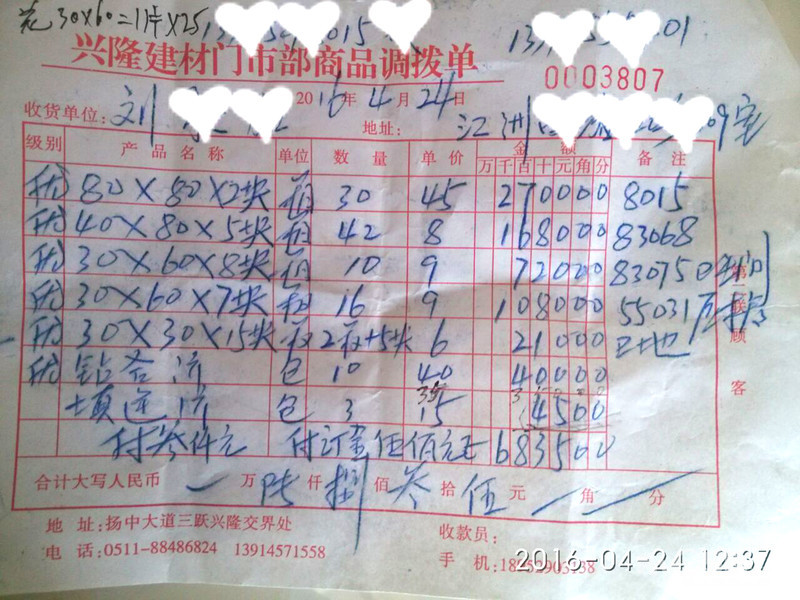 花30×60=11片×25
兴隆建材门市部商品调拨单
0003807
收货单位：刘 2016年4月24日 地址：江洲 09室
级别 产品名称 单位 数量 单价 金额 备注
万千百十元角分
优 80×80×2块 箱 30 45 270000 8015
优 40×80×5块 箱 42 8 168000 83068
优 30×60×8块 箱 10 9 72000 83075
优 30×60×7块 箱 16 9 108000 55031
优 30×30×15块 箱 2箱+5块 6 21000
优 包 10 40 40000
包 3 15 4500
付叁仟元 付订金伍佰元 683500
第二联 顾客
合计大写人民币 万陆仟捌佰叁拾伍元 角 分
地址：扬中大道三跃兴隆交界处
收款员：
电话：0511-88486824 13914571558
手机：
2016-04-24 12:37